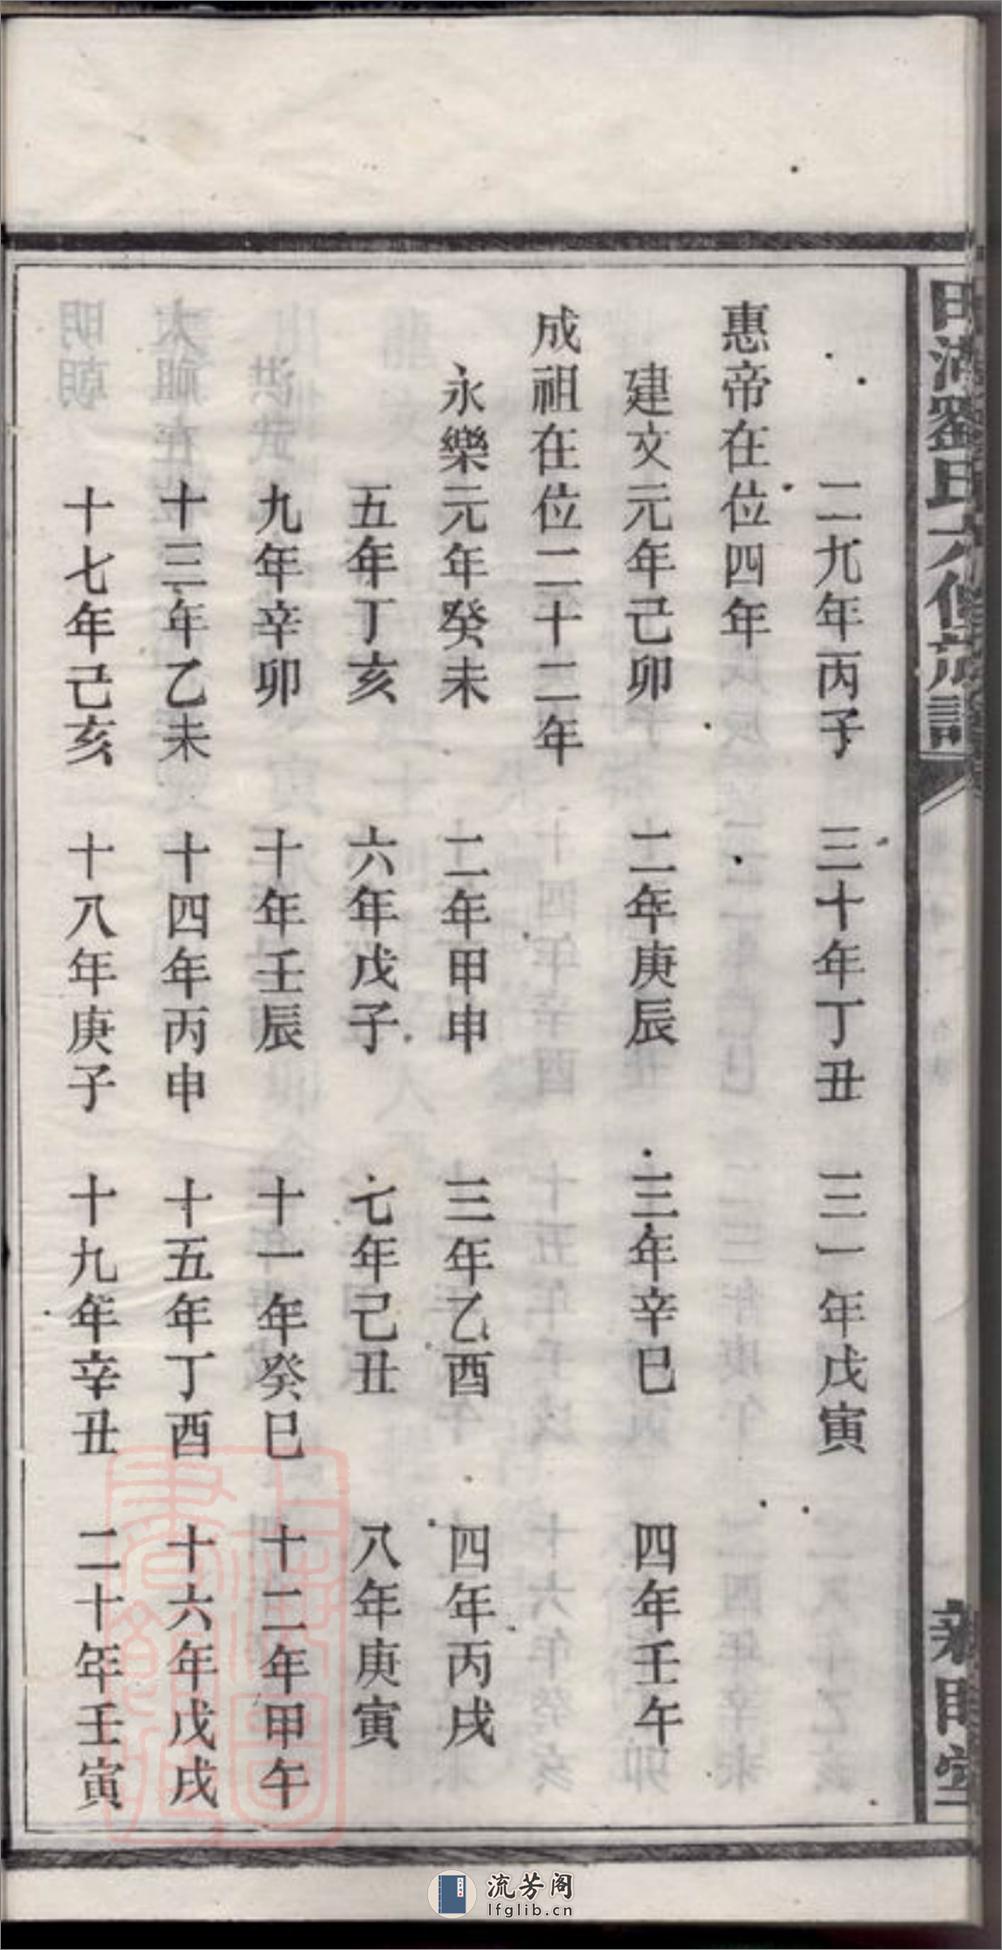 二九年丙子 三十年丁丑 三一年戊寅
惠帝在位四年
建文元年己卯 二年庚辰 三年辛巳 四年壬午
成祖在位二十二年
永樂元年癸未 二年甲申 三年乙酉 四年丙戌
五年丁亥 六年戊子 七年己丑 八年庚寅
九年辛卯 十年壬辰 十一年癸巳 十二年甲午
十三年乙未 十四年丙申 十五年丁酉 十六年戊戌
十七年己亥 十八年庚子 十九年辛丑 二十年壬寅
流芳阁
lfglib.cn